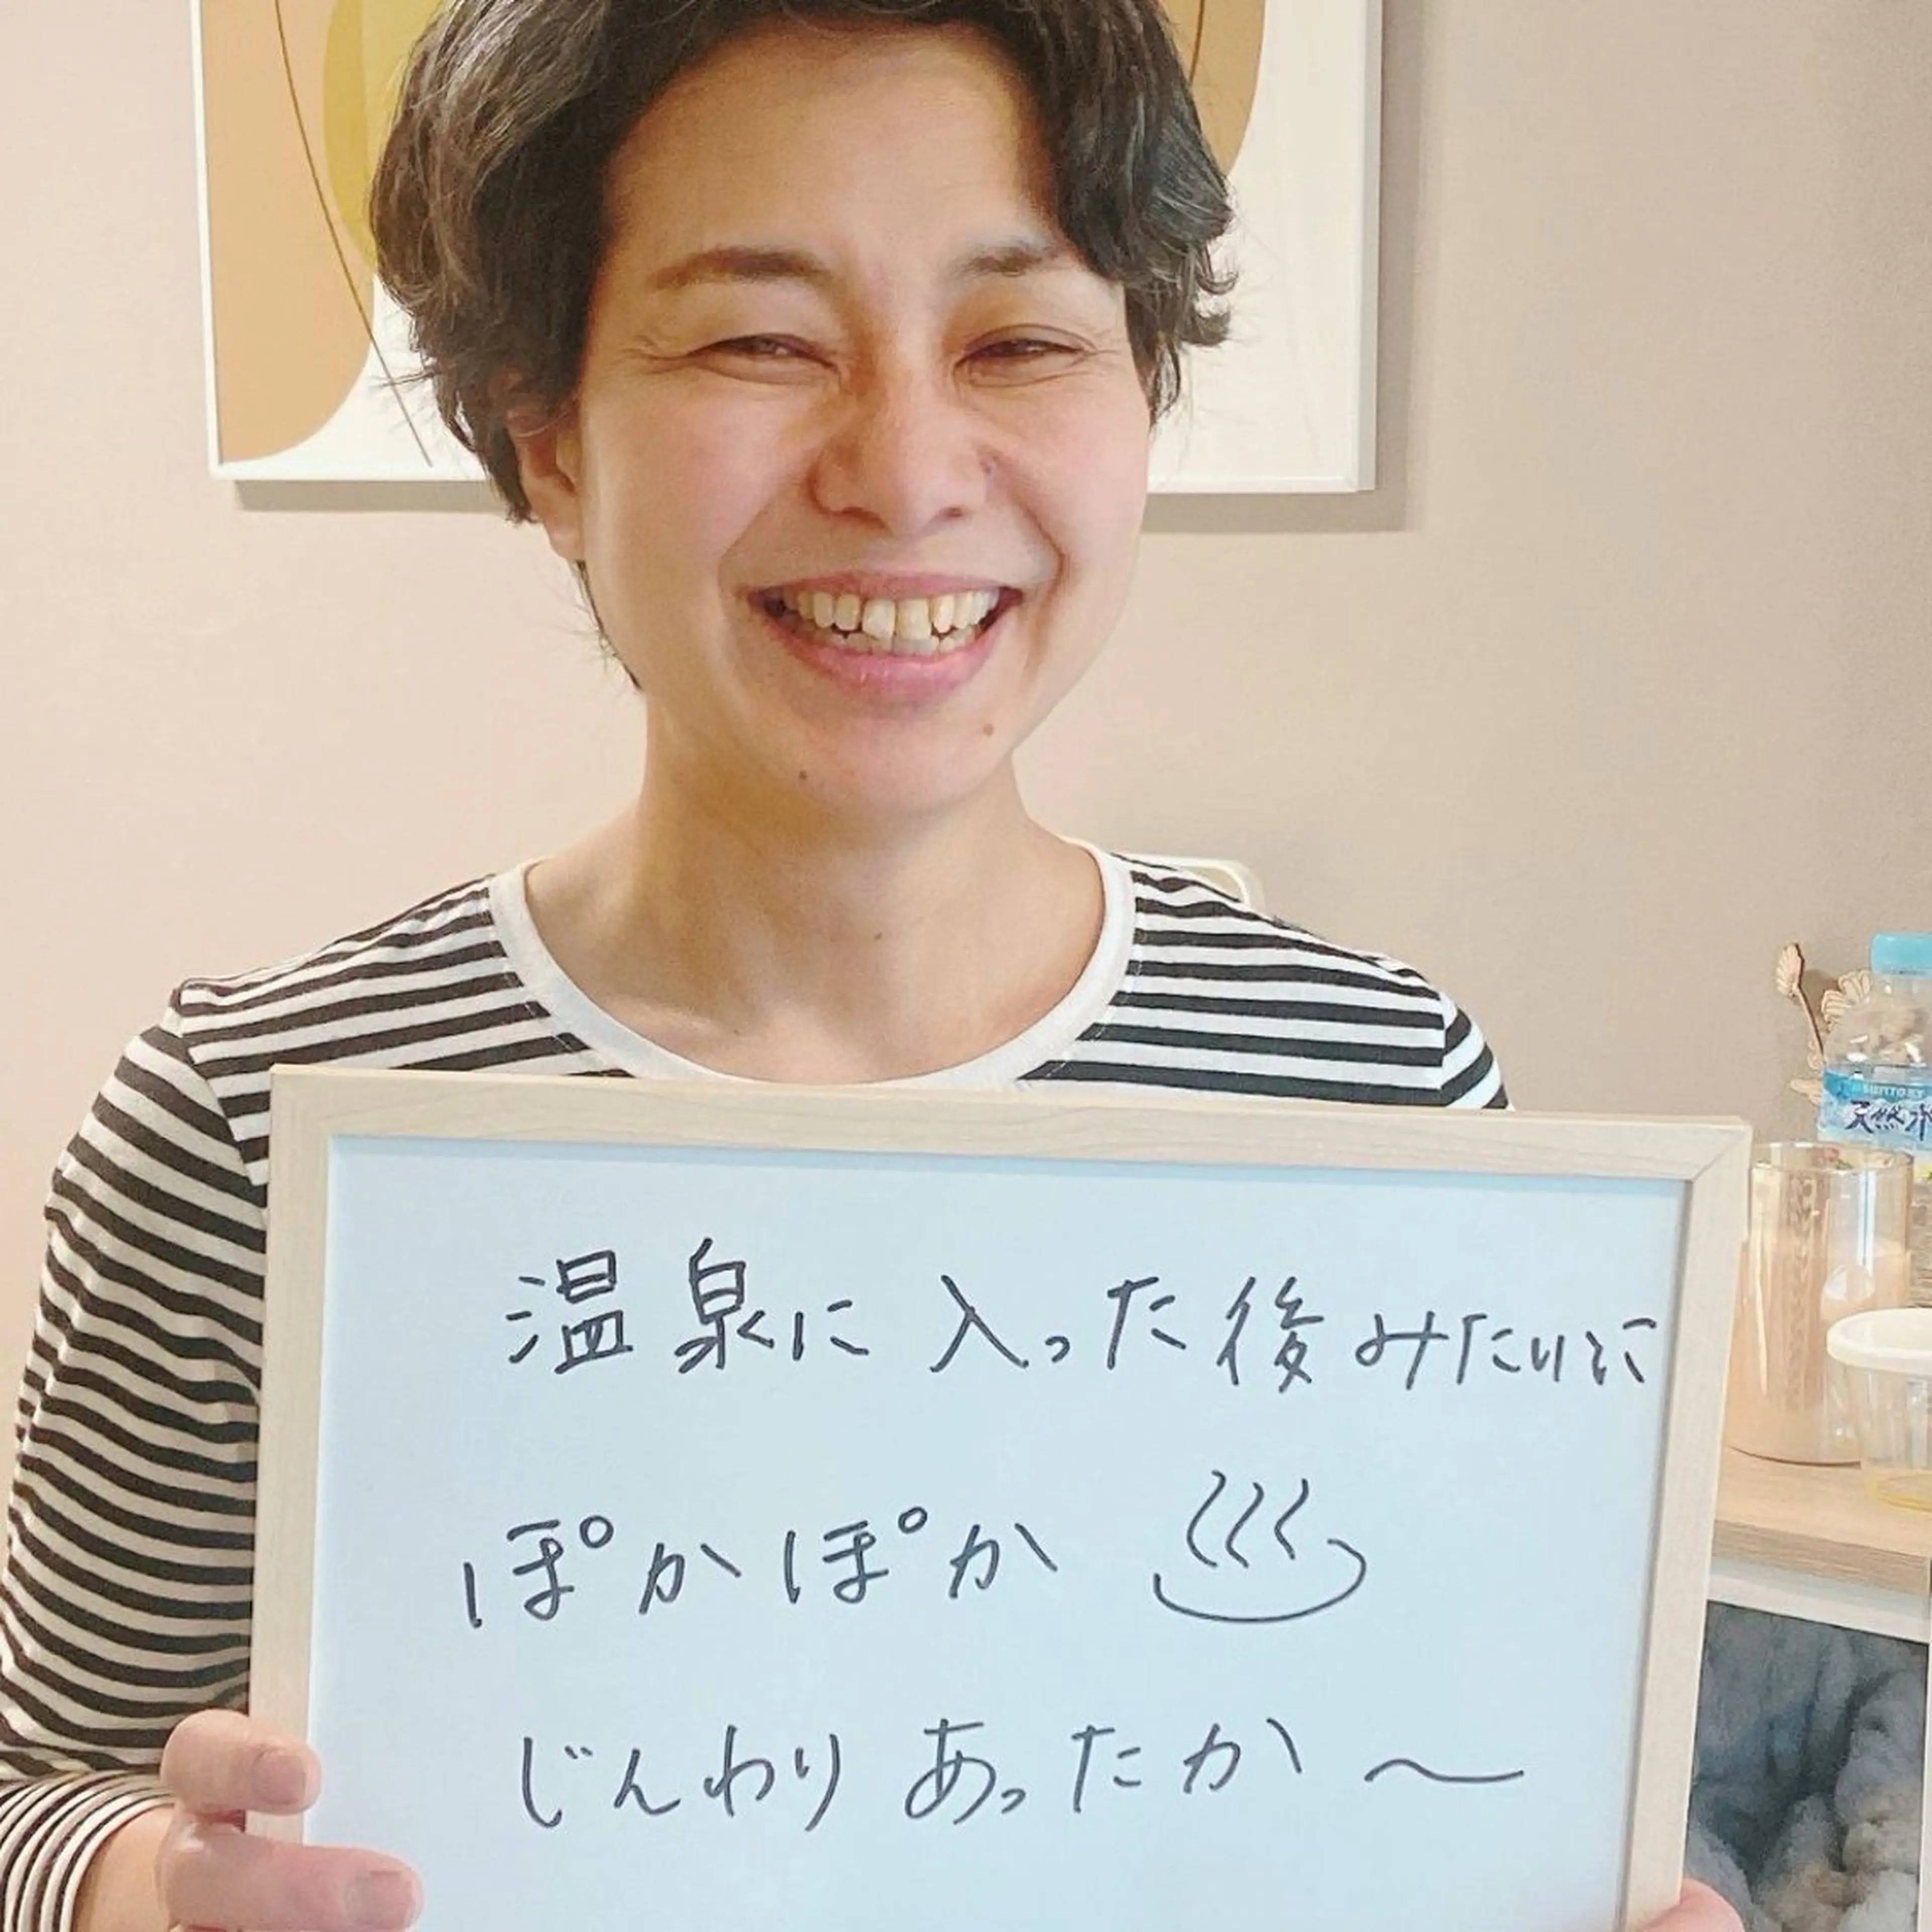 温泉に入った後みたいに
ぽかぽか ♨
じんわりあったか〜
SUNTORY
天然水